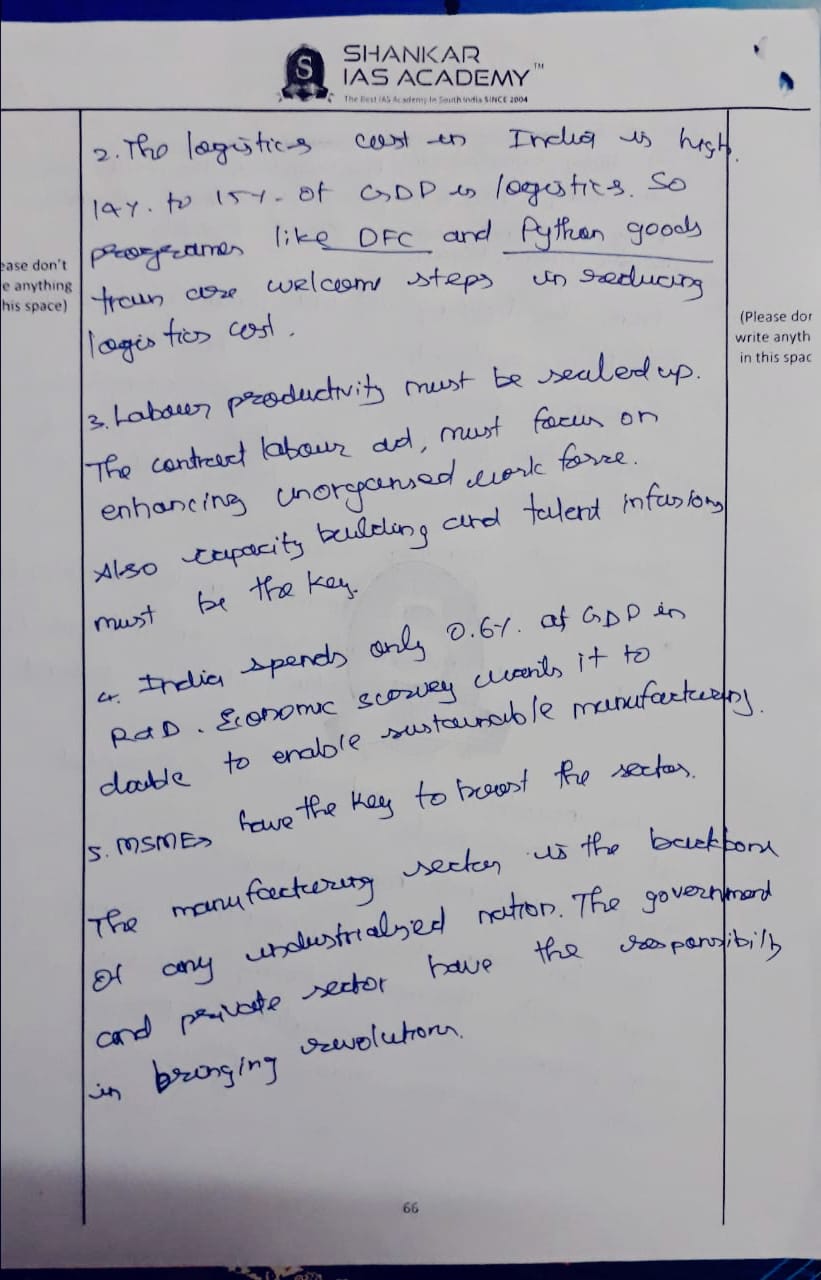 SHANKAR
IAS ACADEMY TM
The Best IAS Academy In South India SINCE 2004
2. The logistics cost in India is high.
14%. to 15%. of GDP is logistics. So
programes like DFC and Python goods
train are welcome steps in reducing
logistics cost.
3. Labour productivity must be scaled up.
The contract labour act, must focus on
enhancing unorganised work force.
Also capacity building and talent infusion
must be the key.
4. India spends only 0.6%. of GDP in
R&D. Economic survey wants it to
double to enable sustainable manufacturing.
5. MSMEs have the key to boost the sector.
The manufacturing sector is the backbone
of any industrialised nation. The government
and private sector have the responsibility
in bringing revolution.
ease don't
e anything
his space)
(Please don
write anyth
in this spac
66